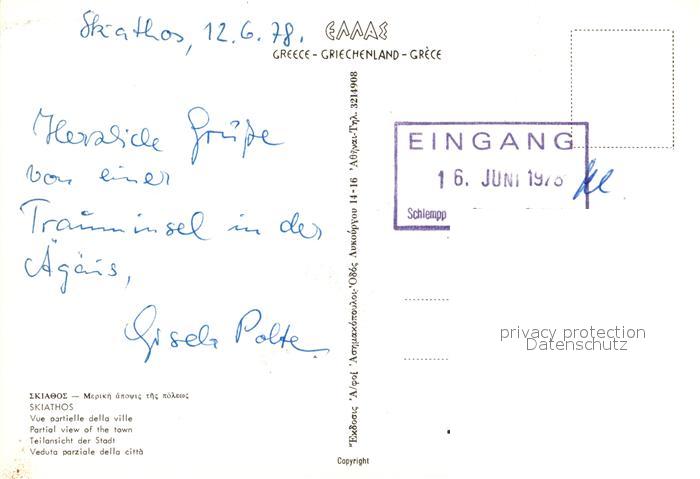 Skiathos, 12.6.78.
ΕΛΛΑΣ
GREECE - GRIECHENLAND - GRÈCE
Herzliche Grüße
von einer
Trauminsel in der
Ägäis,
Gisela Polte.
ΣΚΙΑΘΟΣ — Μερική ἄποψις τῆς πόλεως
SKIATHOS
Vue partielle della ville
Partial view of the town
Teilansicht der Stadt
Veduta parziale della città
Ἔκδοσις Ἀ/φοί Ἀσημακόπουλοι-Ὁδός Λυκούργου 14-16 Ἀθῆναι-Τηλ. 3214908
Copyright
EINGANG
16. JUNI 1978
Schlempp
privacy protection
Datenschutz